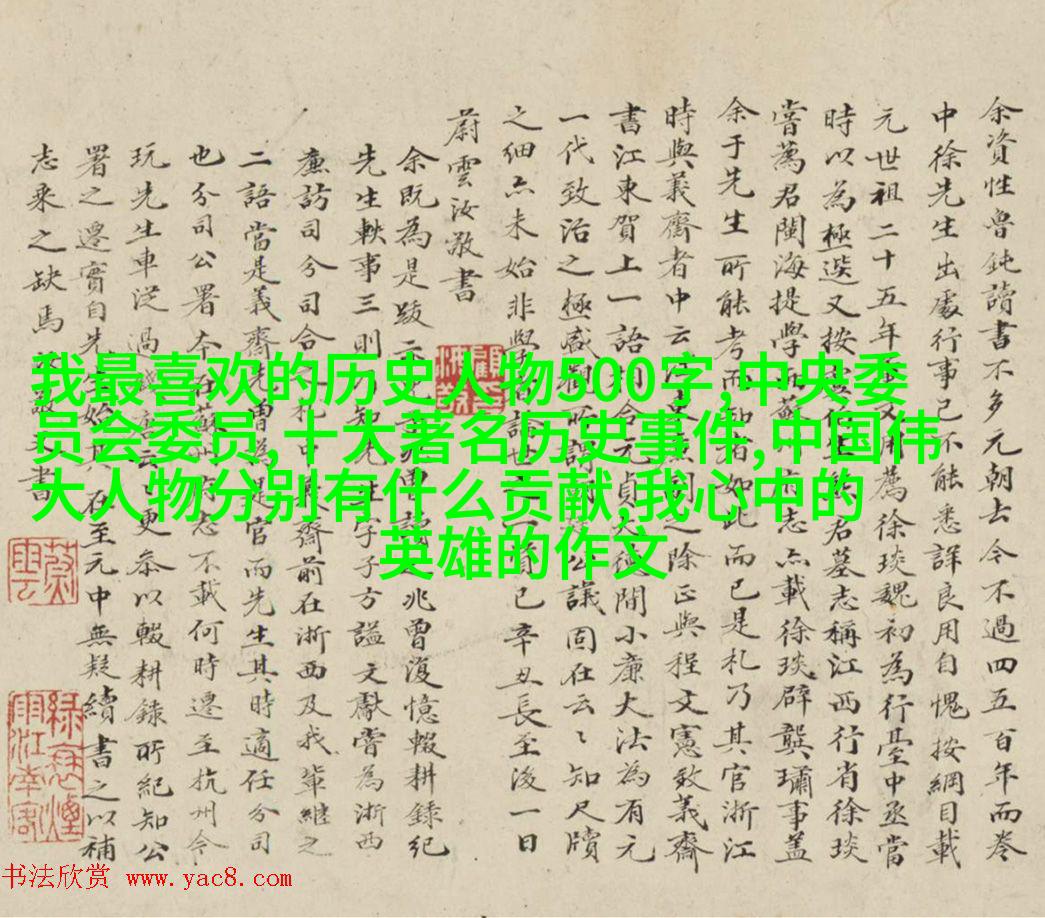 我最喜欢的历史人物500字,中央委
员会委员,十大著名历史事件,中国伟
大人物分别有什么贡献,我心中的
英雄的作文
余資性魯鈍讀書不多元朝去今不過四五百年而卷
中徐先生出處行事已不能悉詳良用自愧按綱目載
元世祖二十五年用薦徐琰魏初為行臺中丞當
時以為極選又按君墓志稱江西行省徐琰
嘗薦君閩海提學蘇州志亦載徐琰辟龔璛事蓋
余于先生所能考而知者如此而已是札乃其官浙江
時與義齋者中云除正與程文憲效義齋
書江東賀上一語合元貞大德間小廉大法為有元
一代致治之極盛所謂公議固在云々知尺牘
之細亦未始非學論世之一資已辛丑長至後一日
蔚雲汝敬書
余既為是跋讀兆曾復憶輟耕錄紀
先生軼事三則乃知先生字子方諡文獻嘗為浙西
廉訪司分司合札中義齋前在浙西及我輩繼之
二語當是義齋先曾為是官而先生其時適任分司
也分司公署本在蘇州志不載何時遷至杭州今
玩先生車從過云更叅以輟耕錄所紀知公
署之遷實自先生始其在至元中無疑續書之以補
志乘之缺焉敬又書
书法欣赏 www.yac8.com